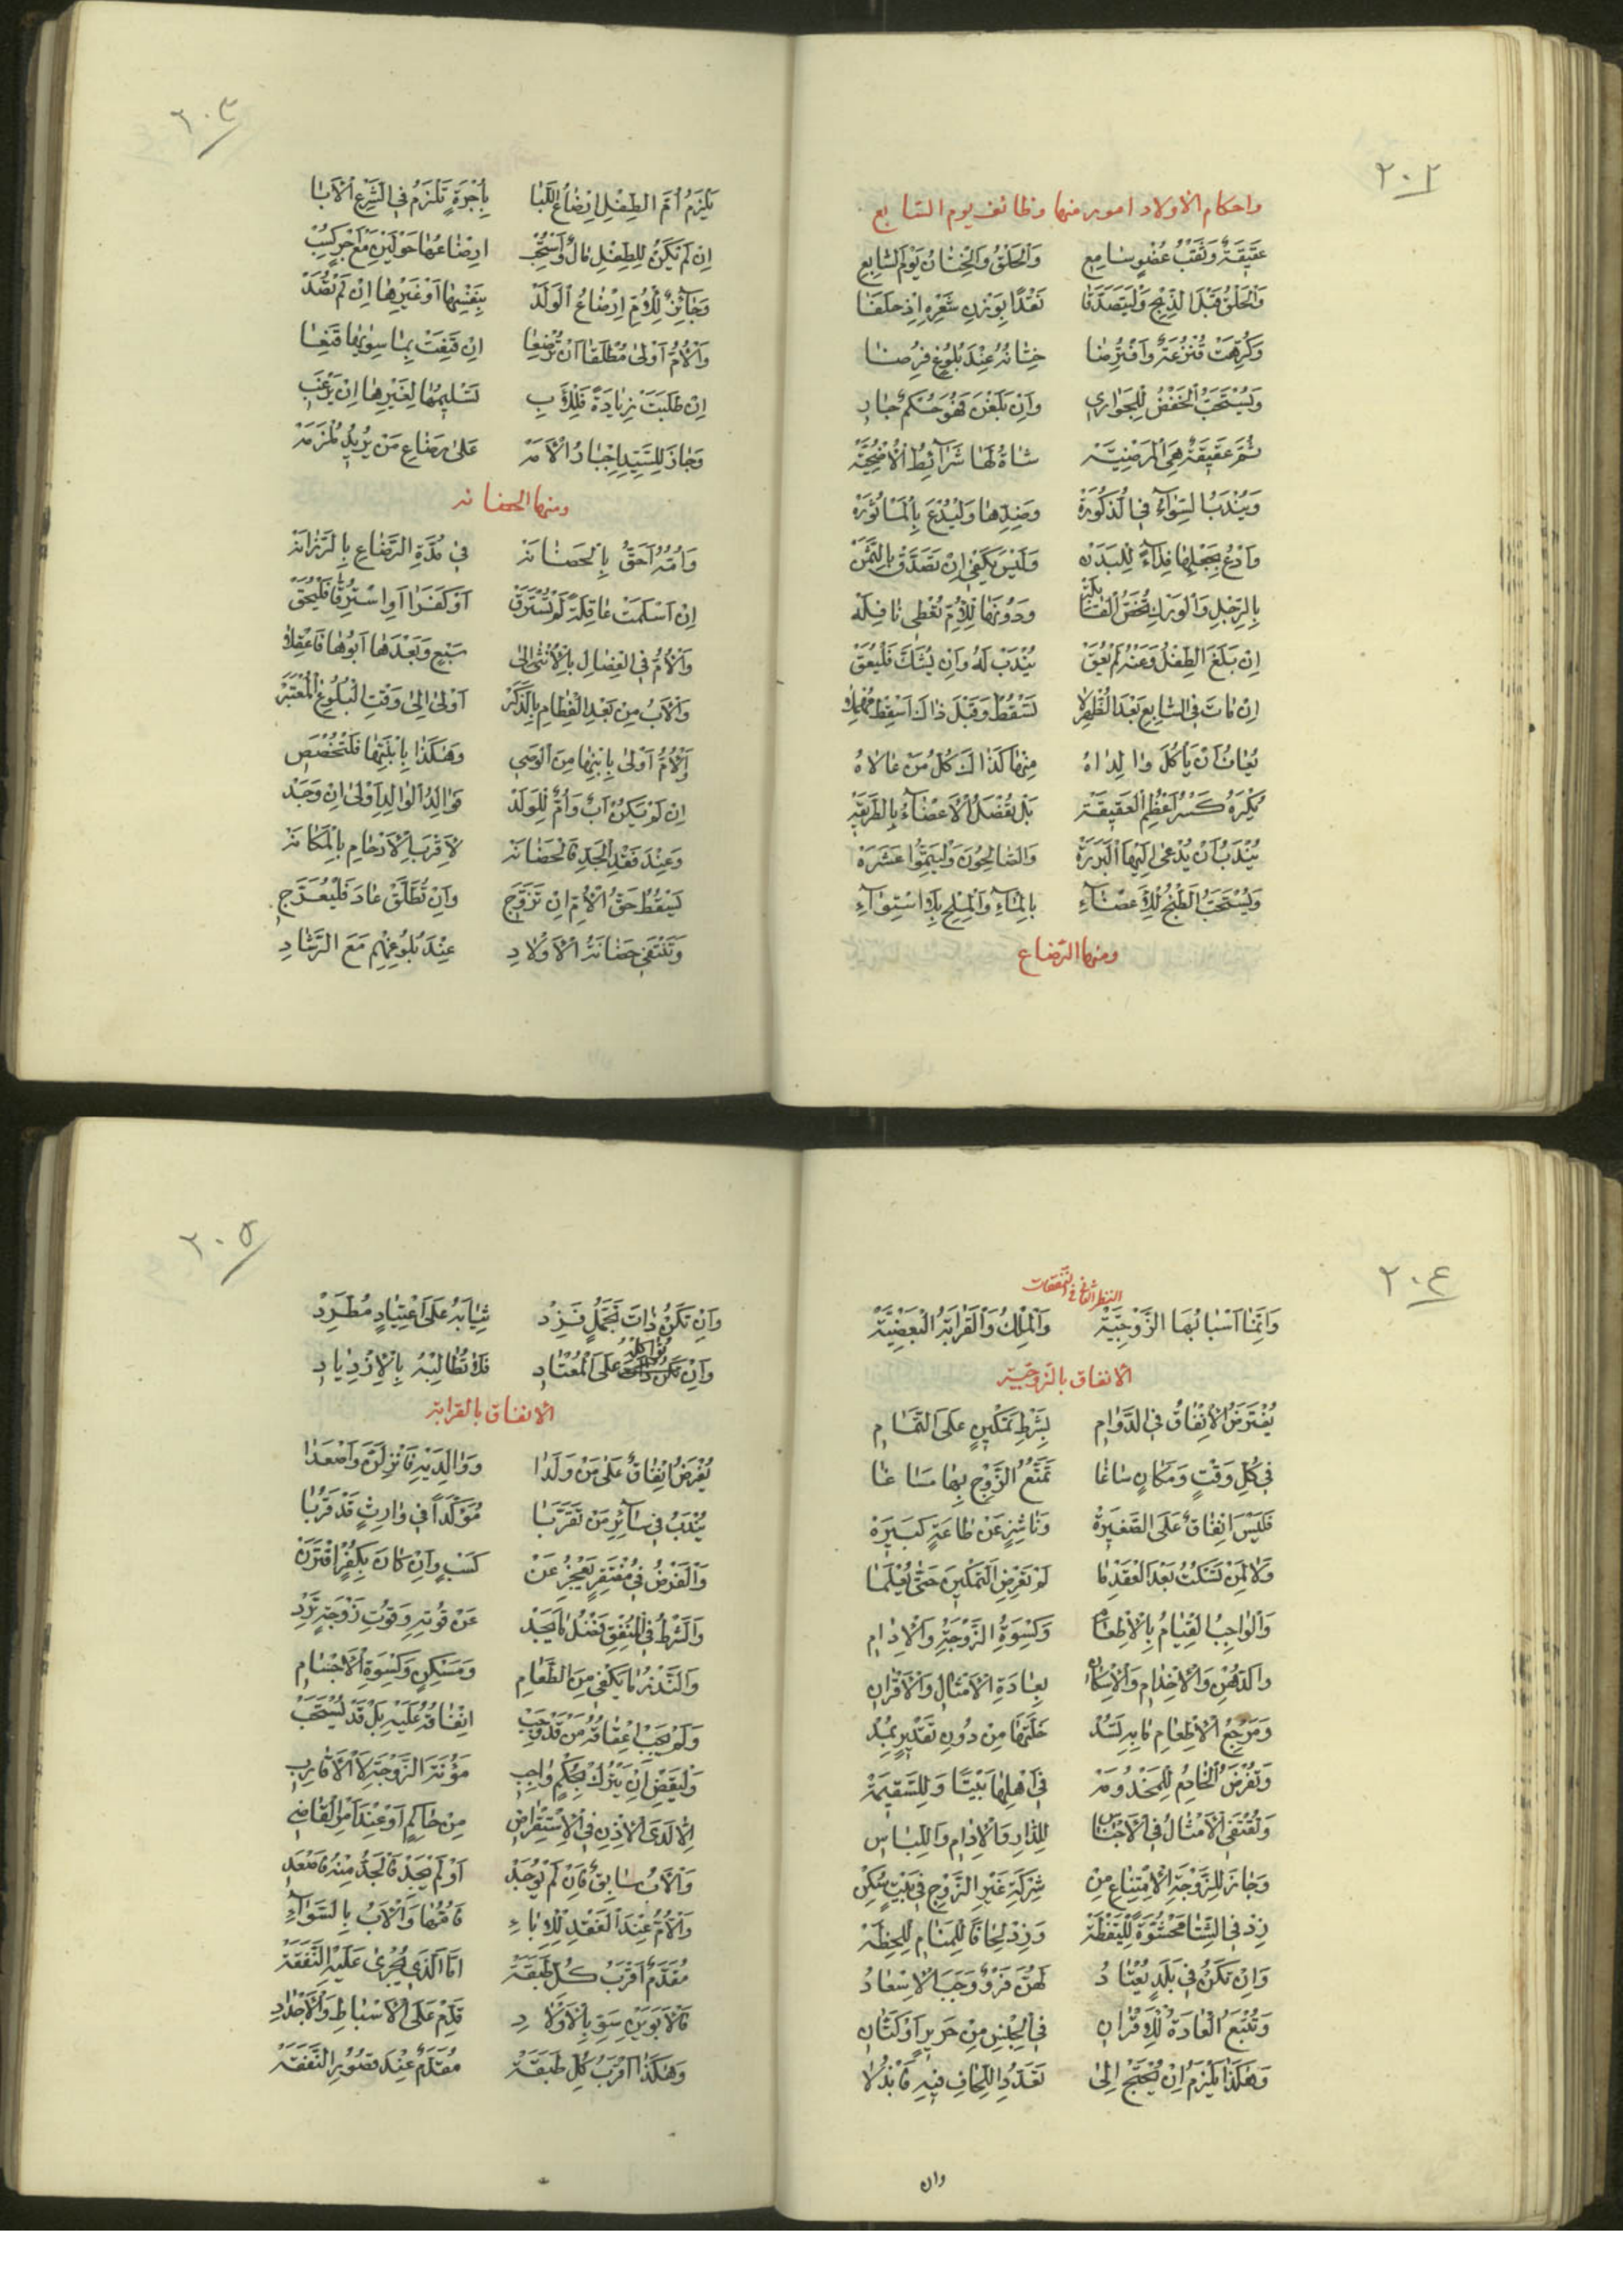 ٢٠٢
واحكام الأولاد امور منها وظائف يوم السابع
عَقيقَةٌ وَثَقْبُ عُضْوٍ سَامِعِ وَالْحَلْقُ وَالْخِتَانُ يَوْمَ السَّابِعِ
وَالْحَلْقُ قَبْلَ الذَّبْحِ وَلْيَتَصَدَّقَا نَقْدًا بِوَزْنِ شَعْرِهِ اِذْ حَلَقَا
وَكُرِهَتْ قُنْزُعَةٌ وَافْتُرِضَا خِتَانُهُ عِنْدَ بُلُوغٍ فُرِضَا
وَيُسْتَحَبُّ الْخَفْضُ لِلْجَوَارِي وَاِنْ بَلَغْنَ فَهْوَ حُكْمٌ جَارِ
ثُمَّ عَقيقَةٌ هِيَ الْمَرْضِيَّة شَاةٌ لَهَا شَرَآئِطُ الْأُضْحِيَّة
وَيُنْدَبُ السَّوَآءُ فِي الذُّكُورَة وَضِدِّهَا وَلْيُدْعَ بِالْمَأْثُورَة
وَادْعُ بِجَعْلِهَا فِدَآءً لِلْبَدَن وَلَيْسَ يَكْفِي اِنْ تَصَدَّقْ بِالثَّمَن
بِالرِّجْلِ وَالْوَرْكِ تُخَصُّ الْقَابِلَة وَدُونَهَا لِلْأُمِّ تُعْطَى نَافِلَة
اِنْ بَلَغَ الطِّفْلُ وَعَنْهُ لَمْ يُعَقّ يُنْدَبْ لَهُ وَاِنْ يُشَكَّ فَلْيُعَقّ
اِنْ مَاتَ فِي السَّابِعِ بَعْدَ الظُّهْرِ لَا تَسْقُطُ وَقَبْلَ ذَاكَ اَسْقِطْ
يُعَافُ اَنْ يَأْكُلَ وَالِدَاهُ مِنْهَا كَذَاكَ كُلُّ مَنْ عَالَاهُ
يُكْرَهُ كَسْرُ اَعْظُمِ الْعَقيقَة بَلْ تُفْصَلُ الْأَعْضَآءُ بِالطَّرِيقَة
يُنْدَبُ اَنْ يُدْعَى اِلَيْهَا الْبَرَرَة وَالصَّالِحُونَ وَلْيَتِمُّوا عَشَرَة
وَيُسْتَحَبُّ الطَّبْخُ لِلْأَعْضَآءِ بِالْمَآءِ وَالْمِلْحِ بِلَا اسْتِوَآءِ
ومنها الرضاع
٢٠٣
يَلْزَمُ اُمَّ الطِّفْلِ اِرْضَاعُ اللِّبَا بِأُجْرَةٍ تَلْزَمُ فِي الشَّرْعِ الْأَبَا
اِنْ لَمْ يَكُنْ لِلطِّفْلِ مَالٌ وَاسْتُحِبّ اِرْضَاعُهَا حَوْلَيْنِ مَعْ اَجْرٍ كُسِبْ
وَجَآئِزٌ لِلْأُمِّ اِرْضَاعُ الْوَلَدْ بِنَفْسِهَا اَوْ غَيْرِهَا اِنْ لَمْ تُصَدْ
وَالْأُمُّ اَوْلَى مُطْلَقًا اَنْ تُرْضِعَا اِنْ قَنِعَتْ بِمَا سِوٰيهَا قَنِعَا
اِنْ طَلَبَتْ زِيَادَةً فَلِلْأَبِ تَسْلِيمُهَا لِغَيْرِهَا اِنْ يَرْغَبِ
وَجَازَ لِلسَّيِّدِ اِجْبَارُ الْأَمَة عَلَى رَضَاعِ مَنْ يُرِيدُ مُلْزَمَة
ومنها الحضانة
وَاُمُّهُ اَحَقُّ بِالْحَضَانَة فِي مُدَّةِ الرَّضَاعِ بِالرَّزَانَة
اِنْ اَسْلَمَتْ عَاقِلَةً لَمْ تُسْتَرَقّ اَوْ كَفَرَا اَوِ اسْتُرِقَّا فَلْيُحَقّ
وَالْأُمُّ فِي الْفِصَالِ بِالْأُنْثَى اِلَى سَبْعٍ وَبَعْدَهَا اَبُوهَا فَاعْقِلَا
وَالْأَبُ مِنْ بَعْدِ الْفِطَامِ بِالذَّكَرْ اَوْلَى اِلَى وَقْتِ الْبُلُوغِ الْمُعْتَبَرْ
وَالْأُمُّ اَوْلَى بِابْنِهَا مِنَ الْوَصِي وَهٰكَذَا بِابْنَتِهَا فَلْتُخْصَصِ
اِنْ لَمْ يَكُنْ اَبٌ وَاُمٌّ لِلْوَلَدْ فَوَالِدُ الْوَالِدِ اَوْلَى اِنْ وُجِدْ
وَعِنْدَ فَقْدِ الْجَدِّ فَالْحَضَانَة لِأَقْرَبِ الْأَرْحَامِ بِالْمَكَانَة
يَسْقُطُ حَقُّ الْأُمِّ اِنْ تَزَوَّجِ وَاِنْ تُطَلَّقْ عَادَ فَلْيُعَرَّجِ
وَتَنْتَفِي حَضَانَةُ الْأَوْلَادِ عِنْدَ بُلُوغِهِمْ مَعَ الرَّشَادِ
٢٠٤
النظر الثاني في النفقات
وَاِنَّمَا اَسْبَابُهَا الزَّوْجِيَّة وَالْمِلْكُ وَالْقَرَابَةُ الْبَعْضِيَّة
الانفاق بالزوجية
يُفْتَرَضُ الْإِنْفَاقُ فِي الدَّوَامِ بِشَرْطِ تَمْكِينٍ عَلَى التَّمَامِ
فِي كُلِّ وَقْتٍ وَمَكَانٍ سَاغَا تَمَتُّعُ الزَّوْجِ بِهَا مَسَاغَا
فَلَيْسَ اِنْفَاقٌ عَلَى الصَّغِيرَة وَنَاشِزٍ عَنْ طَاعَةٍ كَبِيرَة
وَلَا لِمَنْ تَسْكُتُ بَعْدَ الْعَقْدِ مَا لَمْ تَعْرِضِ التَّمْكِينَ حَتَّى يُعْلَمَا
وَالْوَاجِبُ الْقِيَامُ بِالْإِطْعَامِ وَكِسْوَةِ الزَّوْجَةِ وَالْإِدَامِ
وَالدُّهْنِ وَالْإِخْدَامِ وَالْإِسْكَانِ بِعَادَةِ الْأَمْثَالِ وَالْأَقْرَانِ
وَمَرْجِعُ الْإِطْعَامِ مَا بِهِ تُسَدّ خَلَّتُهَا مِنْ دُونِ تَقْدِيرٍ بِمُدّ
وَيُفْرَضُ الْخَادِمُ لِلْمَخْدُومَة فِي اَهْلِهَا بَيْتًا وَلِلسَّقِيمَة
وَتُقْتَفَى الْأَمْثَالُ فِي الْأَجْنَاسِ لِلدَّارِ وَالْإِدَامِ وَاللِّبَاسِ
وَجَازَ لِلزَّوْجَةِ الْاِمْتِنَاعُ مِنْ شِرْكَةِ غَيْرِ الزَّوْجِ فِي بَيْتٍ سُكِنْ
زِدْ فِي الشِّتَا مَحْشُوَّةً لِلْيَقْظَة وَزِدْ لِحَافًا لِلْمَنَامِ لِلْحِظَة
وَاِنْ تَكُنْ فِي بَلَدٍ يُعْتَادُ لَهُنَّ فَرْوٌ وَجَبَ الْإِسْعَادُ
وَتُتْبَعُ الْعَادَةُ لِلْأَقْرَانِ فِي الْجِنْسِ مِنْ حَرِيرٍ اَوْ كَتَّانِ
وَهٰكَذَا يَلْزَمُ اِنْ يُحْتَجْ اِلَى تَعَدُّدِ اللِّحَافِ فِيهِ فَابْذُلَا
وان
٢٠٥
وَاِنْ تَكُنْ ذَاتَ تَجَمُّلٍ فَزِدْ ثِيَابَهُ عَلَى اعْتِيَادٍ مُطَّرِدْ
وَاِنْ تُؤَاكِلْهُ عَلَى الْمُعْتَادِ فَلَا تُطَالِبْهُ بِالْازْدِيَادِ
الانفاق بالقرابة
يُفْرَضُ اِنْفَاقٌ عَلَى مَنْ وَلَدَا وَوَالِدَيْهِ فَانْزِلَنْ وَاصْعَدَا
يُنْدَبُ فِي سَآئِرِ مَنْ تَقَرَّبَا مُؤَكَّدًا فِي وَارِثٍ قَدْ قَرُبَا
وَالْفَرْضُ فِي مُفْتَقِرٍ يَعْجِزُ عَنْ كَسْبٍ وَاِنْ كَانَ بِكُفْرٍ اقْتَرَنْ
وَالشَّرْطُ فِي الْمُنْفِقِ فَضْلُ مَا يَجِدْ عَنْ قُوتِهِ وَقُوتِ زَوْجَةٍ تَرِدْ
وَالْقَدْرُ مَا يَكْفِي مِنَ الطَّعَامِ وَمَسْكَنٍ وَكِسْوَةِ الْأَجْسَامِ
وَلَمْ يَجِبْ اِعْفَافُ مَنْ قَدْ وَجَبْ اِنْفَاقُهُ عَلَيْهِ بَلْ قَدْ يُسْتَحَبّ
وَلْيَقْضِ اِنْ يَتْرُكْ بِحُكْمٍ وَاجِبِ مَؤُنَةَ الزَّوْجَةِ لَا الْأَقَارِبِ
اِلَّا لَدَى الْإِذْنِ فِي الْاِسْتِقْرَاضِ مِنْ حَاكِمٍ اَوْ عِنْدَ اَمْرِ الْقَاضِي
وَالْأَبُ سَابِقٌ فَاِنْ لَمْ يُوجَدْ اَوْ لَمْ يَجِدْ فَالْجَدُّ مِنْهُ فَاصْعَدِ
وَالْأُمُّ عِنْدَ الْفَقْدِ لِلْآبَاءِ فَاُمُّهَا وَالْأَبُ بِالسَّوَآءِ
مُقَدَّمٌ اَقْرَبُ كُلِّ طَبَقَة اَمَّا الَّذِي يُجْرَى عَلَيْهِ النَّفَقَة
فَالْأَبَوَيْنِ سَوِّ بِالْأَوْلَادِ قَدِّمْ عَلَى الْأَسْبَاطِ وَالْأَجْدَادِ
وَهٰكَذَا اَقْرَبُ كُلِّ طَبَقَة مُقَدَّمٌ عِنْدَ قُصُورِ النَّفَقَة